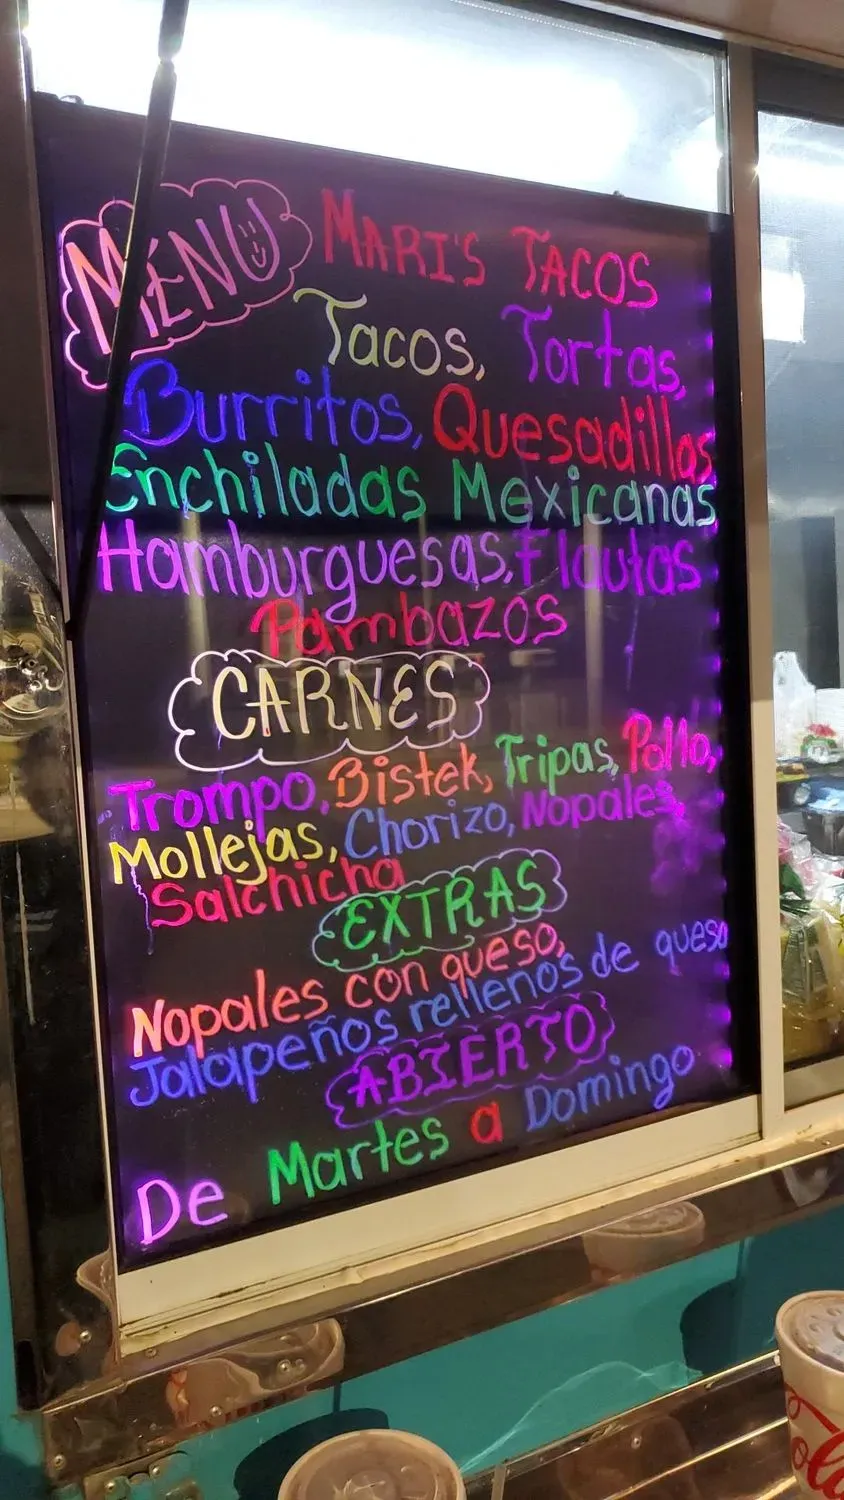 MENU MARI'S TACOS
Tacos, Tortas,
Burritos, Quesadillas
Enchiladas Mexicanas
Hamburguesas, Flautas
Pambazos
CARNES
Trompo, Bistek, Tripas, Pollo,
Mollejas, Chorizo, Nopales,
Salchicha
EXTRAS
Nopales con queso,
Jalapeños rellenos de queso
ABIERTO
De Martes a Domingo